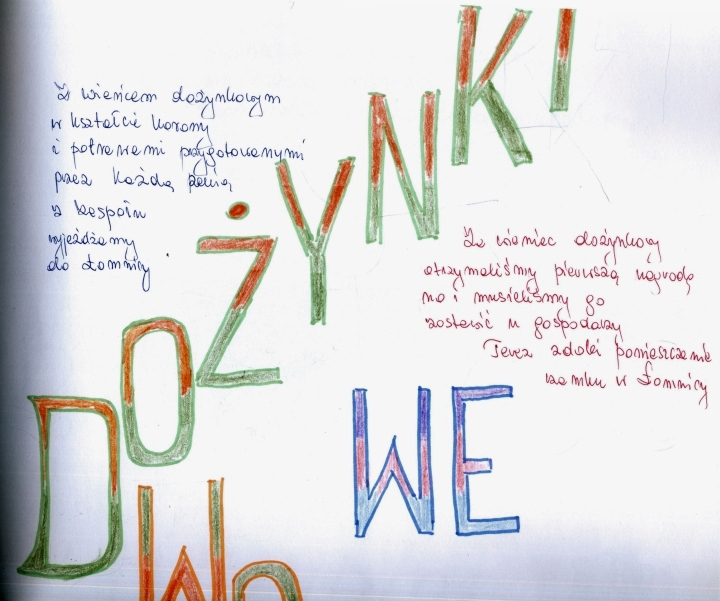 Z wieńcem dożynkowym
w kształcie korony
i potrawami przygotowanymi
przez każdą panią
z zespołu
wyjeżdżamy
do Łomnicy.
DOŻYNKI
Za wieniec dożynkowy
otrzymaliśmy pierwszą nagrodę
no i musieliśmy go
zostawić u gospodarzy
Teraz zdobi pomieszczenie
zamku w Łomnicy
WE
DWO